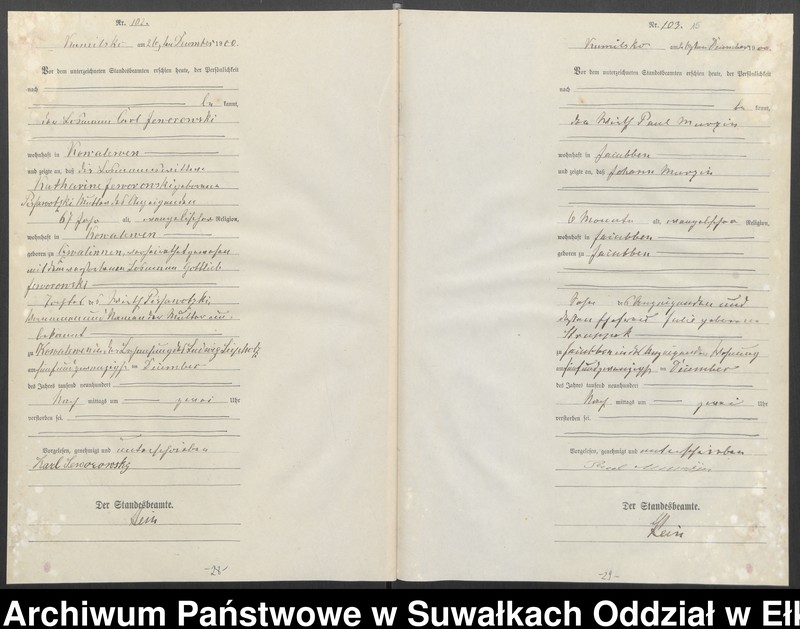 Nr. 102.
am ten December 1900.
Vor dem unterzeichneten Standesbeamten erschien heute, der Persönlichkeit
nach
be kannt,
der Losmann Carl Jeworowski
wohnhaft in Kowalewen
und zeigte an, daß die
Katharine Jeworowski geborene
Mutter des Anzeigenden
67 Jahr alt, evangelischer Religion,
wohnhaft in Kowalewen
geboren zu verheirathet gewesen
mit dem verstorbenen Losmann Gottlieb
Jeworowski
Tochter des Wirth
und Namen der Mutter un-
bekannt
zu Kowalewen in der Behausung des Ludwig
am fünfundzwanzigsten December
des Jahres tausend neunhundert
Nach mittags um zwei Uhr
verstorben sei.
Vorgelesen, genehmigt und unterschrieben
Karl Jeworowsky
Der Standesbeamte.
Hein
-28-
Nr. 103.
am ten December 1900.
Vor dem unterzeichneten Standesbeamten erschien heute, der Persönlichkeit
nach
be kannt,
der Wirth Paul Murzin
wohnhaft in Jakubben
und zeigte an, daß Johann Murzin
6 Monate alt, evangelischer Religion,
wohnhaft in Jakubben
geboren zu Jakubben
Sohn des Anzeigenden und
dessen Ehefrau Julie geborene
zu Jakubben in des Anzeigenden Wohnung
am fünfundzwanzigsten December
des Jahres tausend neunhundert
Nach mittags um zwei Uhr
verstorben sei.
Vorgelesen, genehmigt und unterschrieben
Paul Murzin
Der Standesbeamte.
Hein
-29-
Archiwum Państwowe w Suwałkach Oddział w Ełk